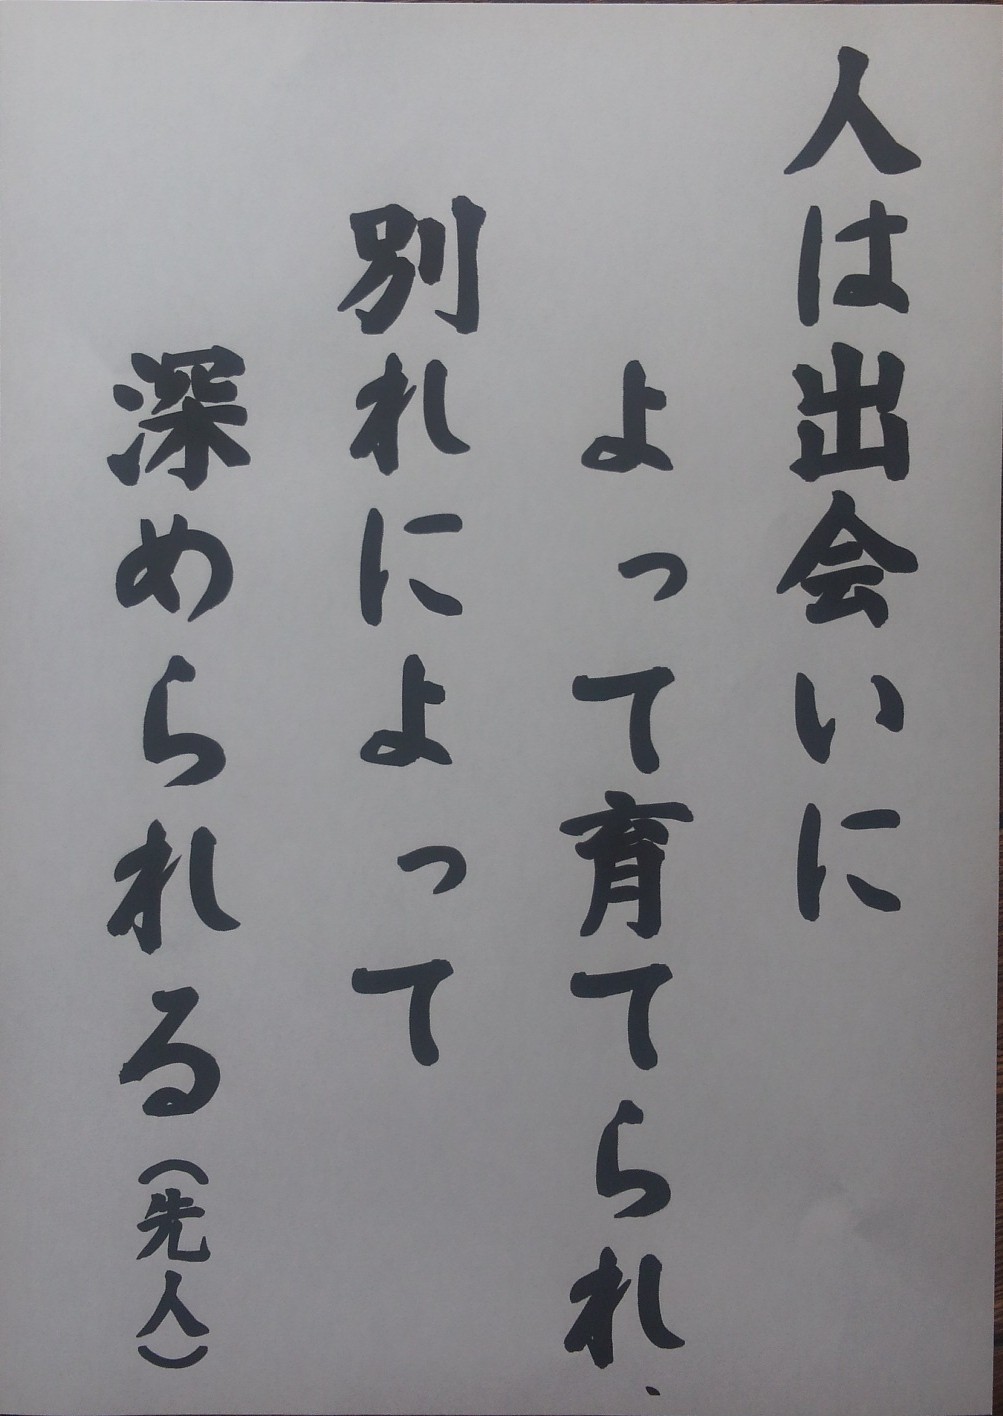 人は出会いに
よって育てられ、
別れによって
深められる（先人）